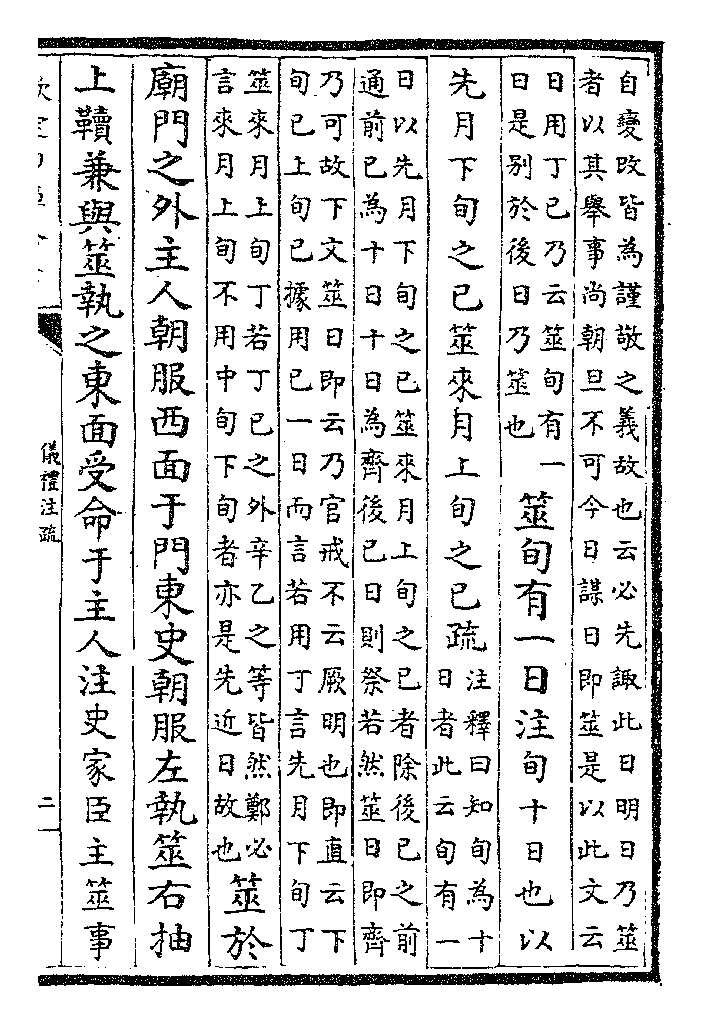 自變改皆為謹敬之義故也云必先諏此日明日乃筮
者以其舉事尚朝旦不可今日謀日即筮是以此文云
日用丁己乃云筮旬有一
日是別於後日乃筮也
筮旬有一日注旬十日也以
先月下旬之己筮來月上旬之己疏
注釋曰知旬為十
日者此云旬有一
日以先月下旬之己筮來月上旬之己者除後己之前
通前己為十日十日為齊後己日則祭若然筮日即齊
乃可故下文筮日即云乃官戒不云厥明也即直云下
旬己上旬己據用己一日而言若用丁言先月下旬丁
筮來月上旬丁若丁己之外辛乙之等皆然鄭必
言來月上旬不用中旬下旬者亦是先近日故也
筮於
廟門之外主人朝服西面于門東史朝服左執筮右抽
上韇兼與筮執之東面受命于主人注史家臣主筮事
儀禮注疏
二